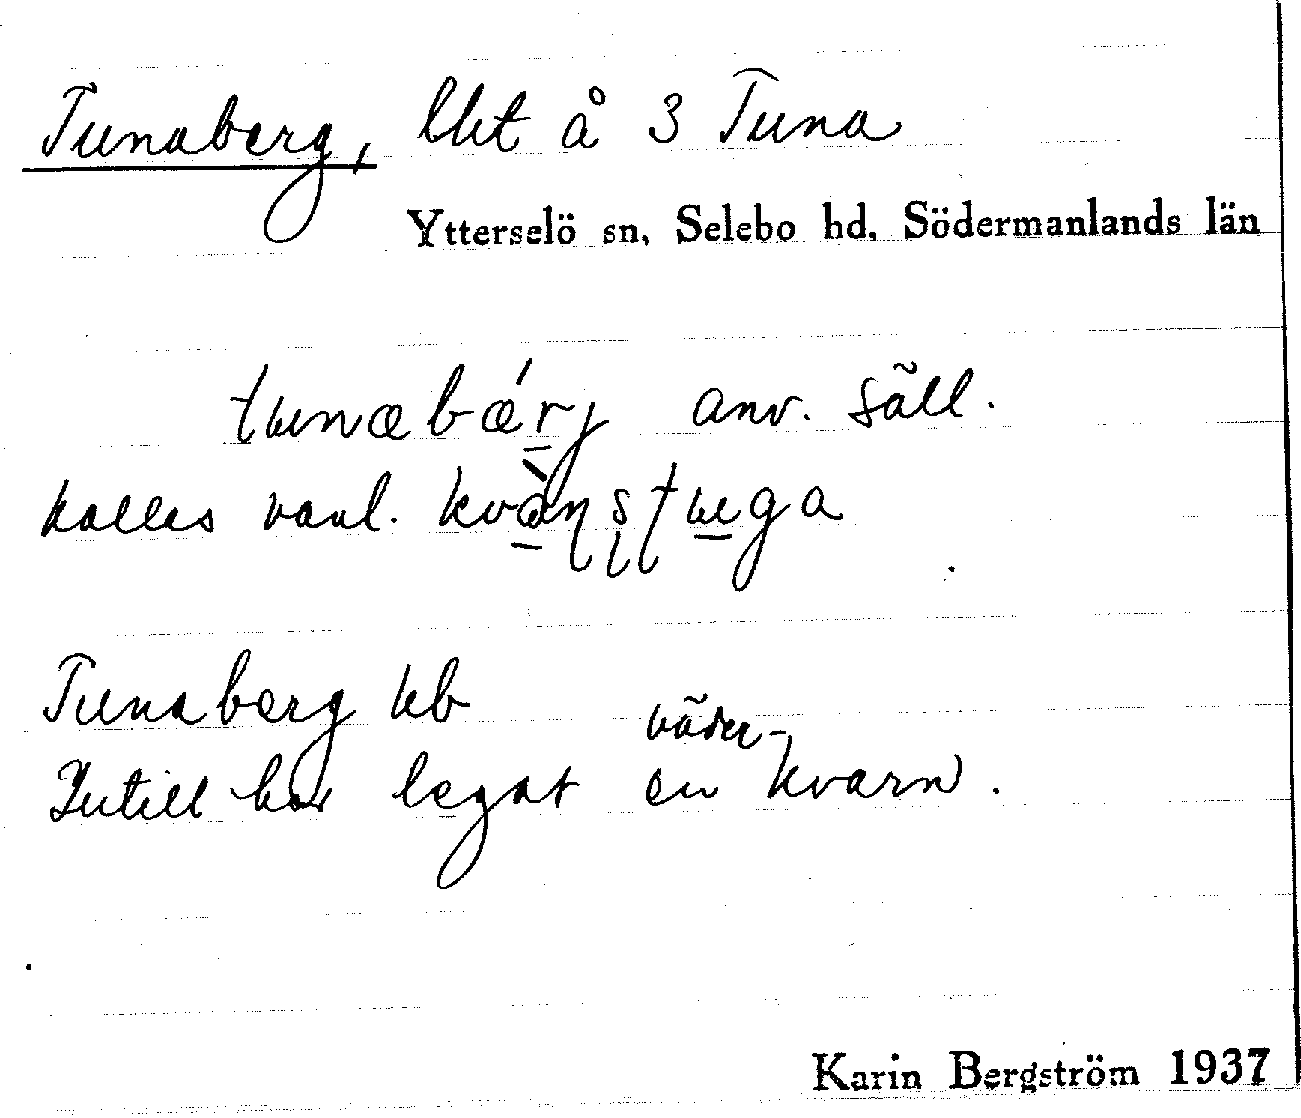 Tunaberg, lht å 3 Tuna
Ytterselö sn, Selebo hd, Södermanlands län
tunabǽrj anv. säll.
kallas vanl. kvàɳʂʈuga
Tunaberg kb
väder-
Intill har legat en kvarn.
Karin Bergström 1937